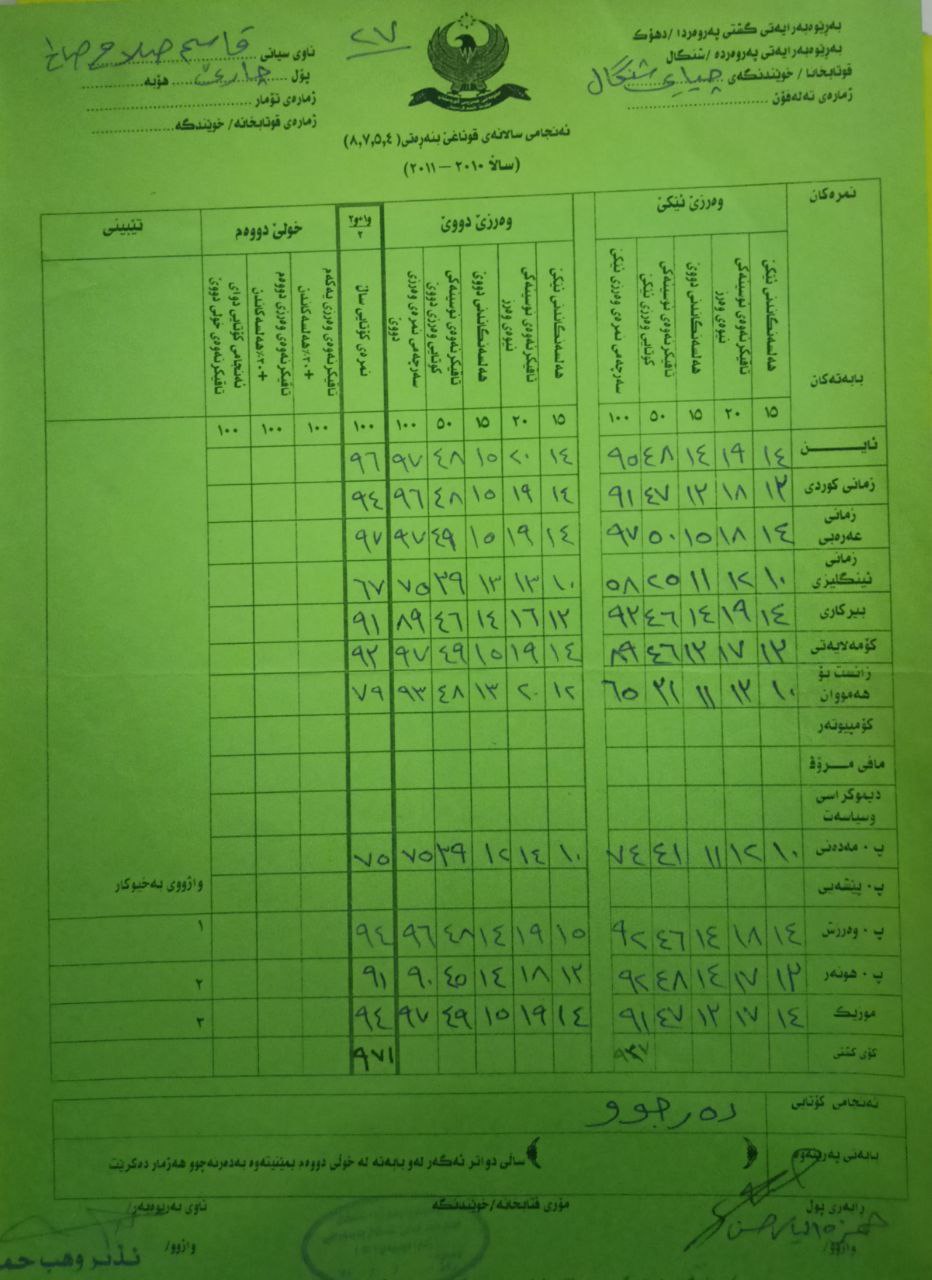 بەڕێوەبەرایەتی گشتی پەروەردا /دهۆک
بەڕێوەبەرایەتی پەروەردە /شنگال
قوتابخانا / خوێندنگەی چیایێ شنگال
ژمارەی تەلەفۆن
٢٧
ناوی سیانی قاسم صلاح صالح
پۆل چارێ هۆبە
ژمارەی تۆمار
ژمارەی قوتابخانە/ خوێندگە
ئەنجامی سالانەی قوناغێ بنەڕەتی( ٨,٧,٥,٤)
(سالا ٢٠١٠ – ٢٠١١)
نمرەکان وەرزێ ئێکێ وەرزێ دووێ و١+و٢ ٢ خولێ دووەم تێبینی
بابەتەکان هەلسەنگاندنی ئێکێ تاقیکرنەوەی نوسینەکی نیوەی وەرز هەلسەنگاندنی دووێ تاقیکرنەوەی نوسینەکی کۆتایی وەرزی ئێکێ سەرجەمی نمرەی وەرزی ئێکێ هەلسەنگاندنی ئێکێ تاقیکرنەوەی نوسینەکی نیوەی وەرز هەلسەنگاندنی دووێ تاقیکرنەوەی نوسینەکی کوتایی وەرزی دووێ سەرجەمی نمرەی وەرزی دووێ نمرەی کۆتایی سال تاقیکرنەوەی وەرزی یەکەم +٣٠٪هەلسەنگاندن تاقیکرنەوەی وەرزی دووەم +٣٠٪هەلسەنگاندن ئەنجامی کۆتایی دوای تاقیکرنەوەی خولی دووێ
١٥ ٢٠ ١٥ ٥٠ ١٠٠ ١٥ ٢٠ ١٥ ٥٠ ١٠٠ ١٠٠ ١٠٠ ١٠٠ ١٠٠
ئایـــــن ١٤ ١٩ ١٤ ٤٨ ٩٥ ١٤ ٢٠ ١٥ ٤٨ ٩٧ ٩٦
زمانی کوردی ١٣ ١٨ ١٣ ٤٧ ٩١ ١٤ ١٩ ١٥ ٤٨ ٩٦ ٩٤
زمانی عەرەبی ١٤ ١٨ ١٥ ٥٠ ٩٧ ١٤ ١٩ ١٥ ٤٩ ٩٧ ٩٧
زمانی ئینگلیزی ١٠ ١٢ ١١ ٢٥ ٥٨ ١٠ ١٣ ١٣ ٣٩ ٧٥ ٦٧
بیرکاری ١٤ ١٩ ١٤ ٤٦ ٩٣ ١٣ ١٦ ١٤ ٤٦ ٨٩ ٩١
کۆمەلایەتی ١٣ ١٧ ١٣ ٤٦ ٨٩ ١٤ ١٩ ١٥ ٤٩ ٩٧ ٩٣
زانست بۆ هەمووان ١٠ ١٣ ١١ ٣١ ٦٥ ١٢ ٢٠ ١٣ ٤٨ ٩٣ ٧٩
کۆمپیوتەر
مافی مـــرۆڤ
دیموکراسی وسیاسەت
پ٠ مەدەنی ١٠ ١٢ ١١ ٤١ ٧٤ ١٠ ١٤ ١٢ ٣٩ ٧٥ ٧٥
پ٠ پیشەیی واژووی بەخێوکار
پ٠ وەرزش ١٤ ١٨ ١٤ ٤٦ ٩٢ ١٥ ١٩ ١٤ ٤٨ ٩٦ ٩٤ ١
پ٠ هونەر ١٣ ١٧ ١٤ ٤٨ ٩٢ ١٣ ١٨ ١٤ ٤٥ ٩٠ ٩١ ٢
موزیک ١٤ ١٧ ١٣ ٤٧ ٩١ ١٤ ١٩ ١٥ ٤٩ ٩٧ ٩٤ ٣
کۆی گشتی ٩٣٧ ٩٧١
ئەنجامی کۆتایی دەرچوو
بابەتی پەڕینەوە ( ) سالی دواتر ئەگەر لەو بابەتە لە خولی دووەم بمێنیتەوە بەدەرنەچوو هەژمار دەکرێت
ڕابەری پول مۆری قتابخانە/خوێندنگە ناوی بەرێوەبەر/
واژوو/ واژوو/
نذیر وهب